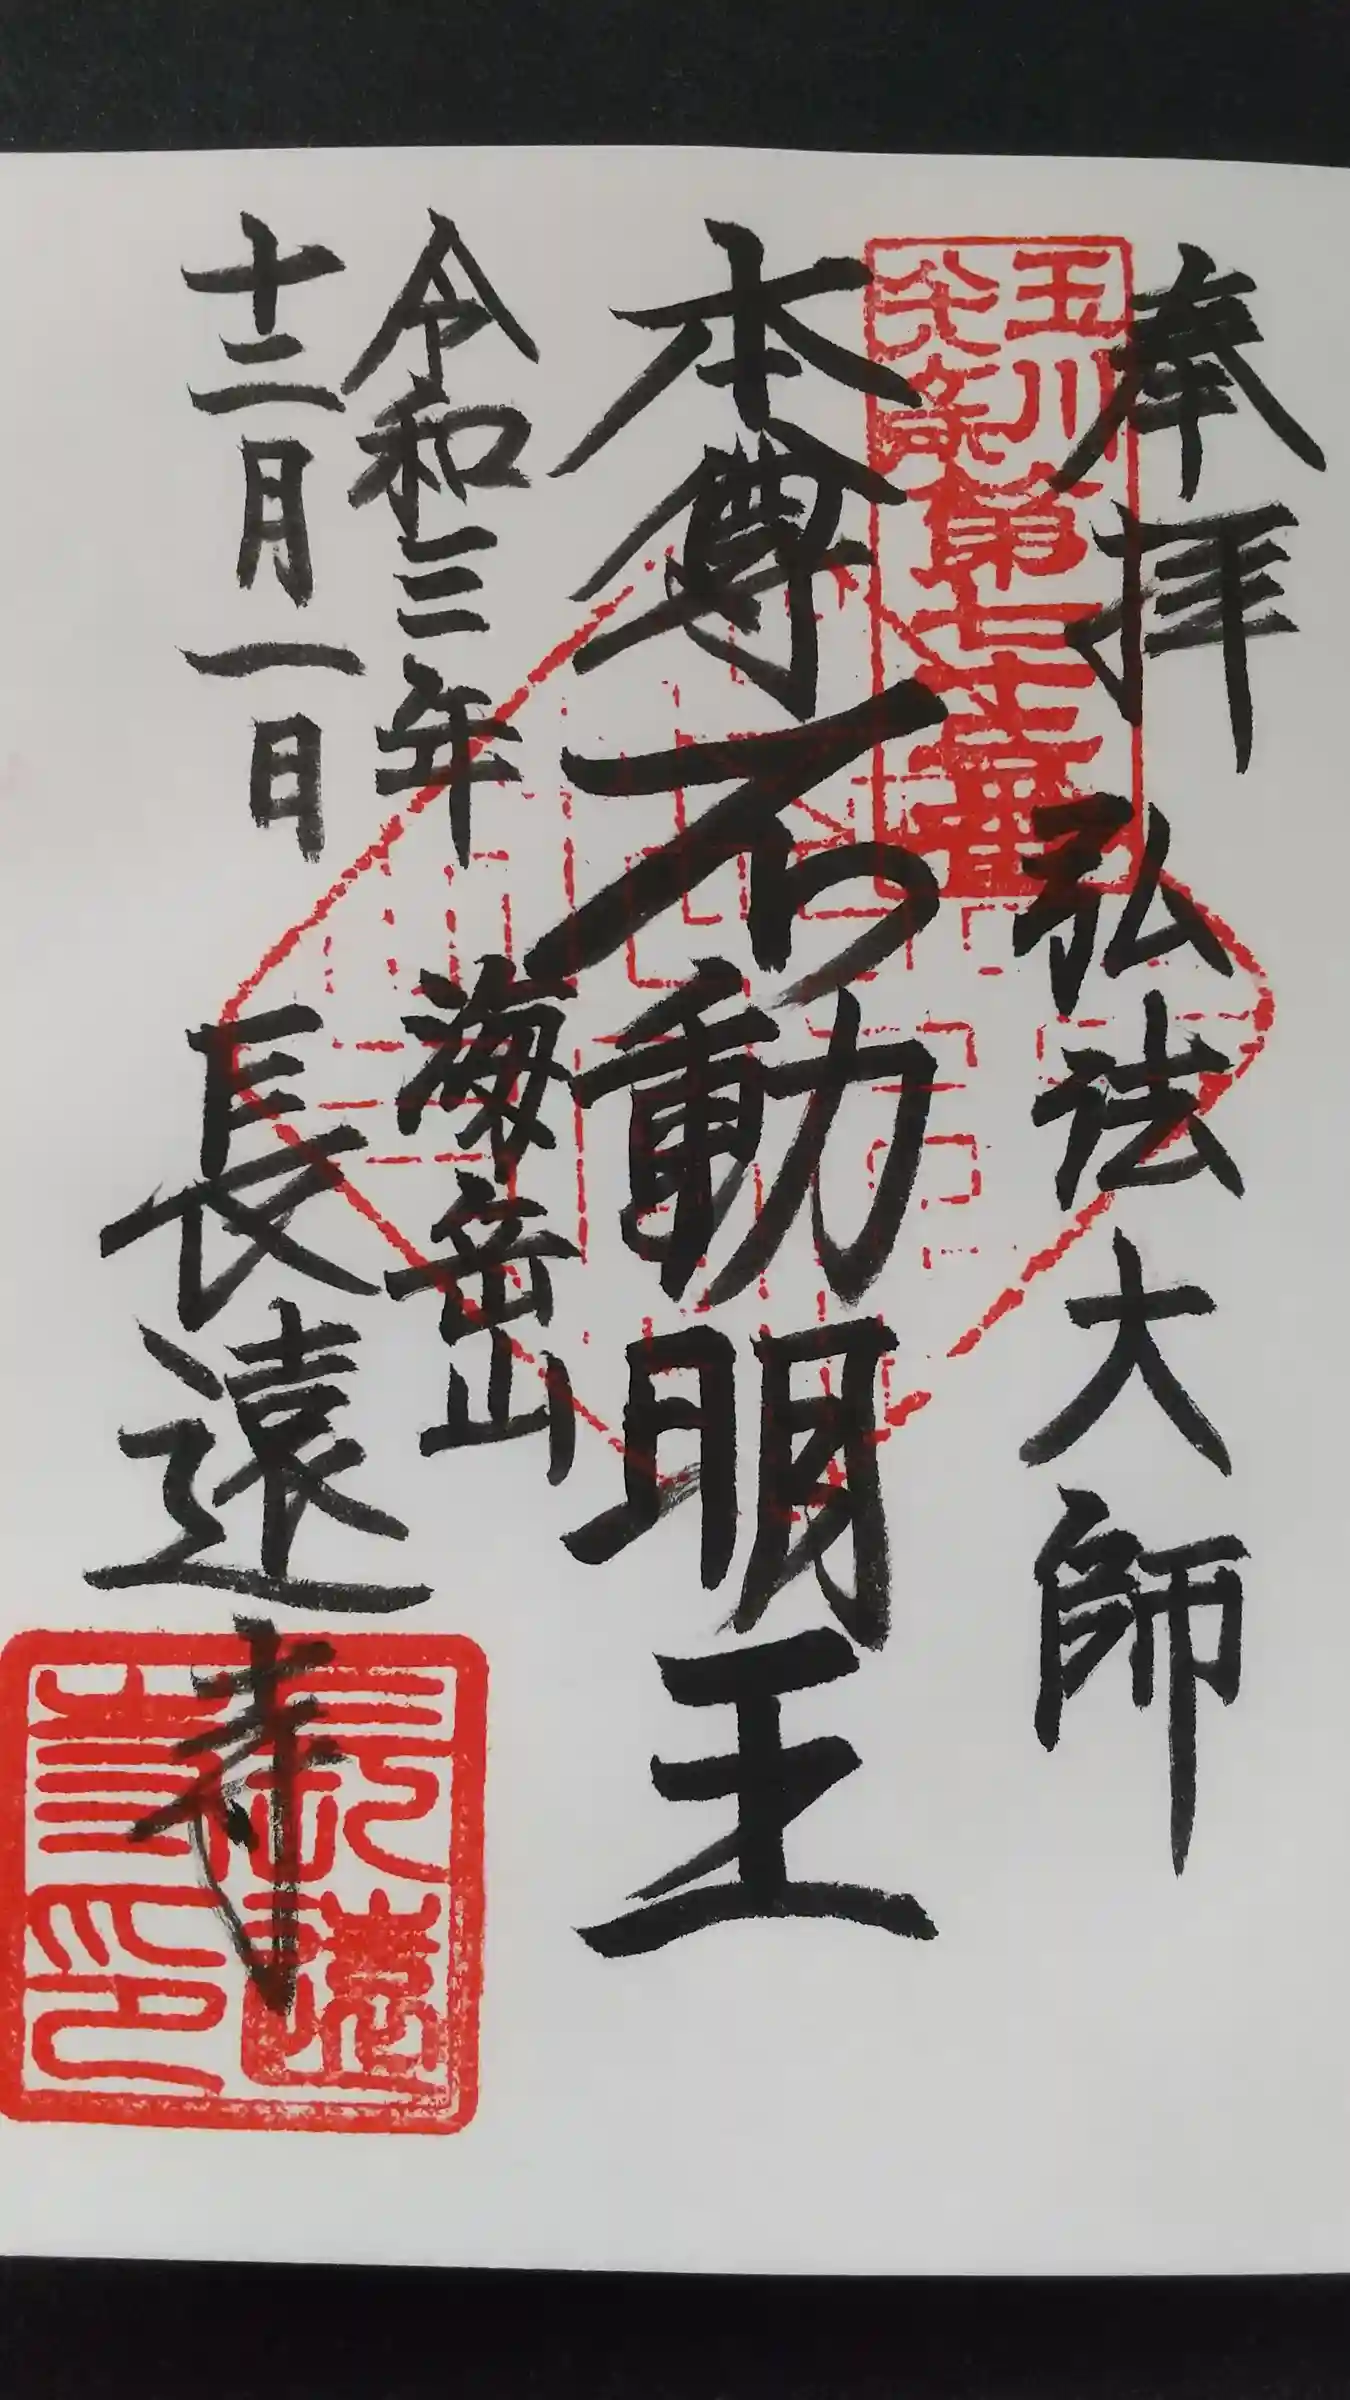 奉拝 弘法大師
玉川
八十八ヶ所
第七十二番
本尊不動明王
令和三年
十二月一日
海岳山
長遠寺
長遠
寺印